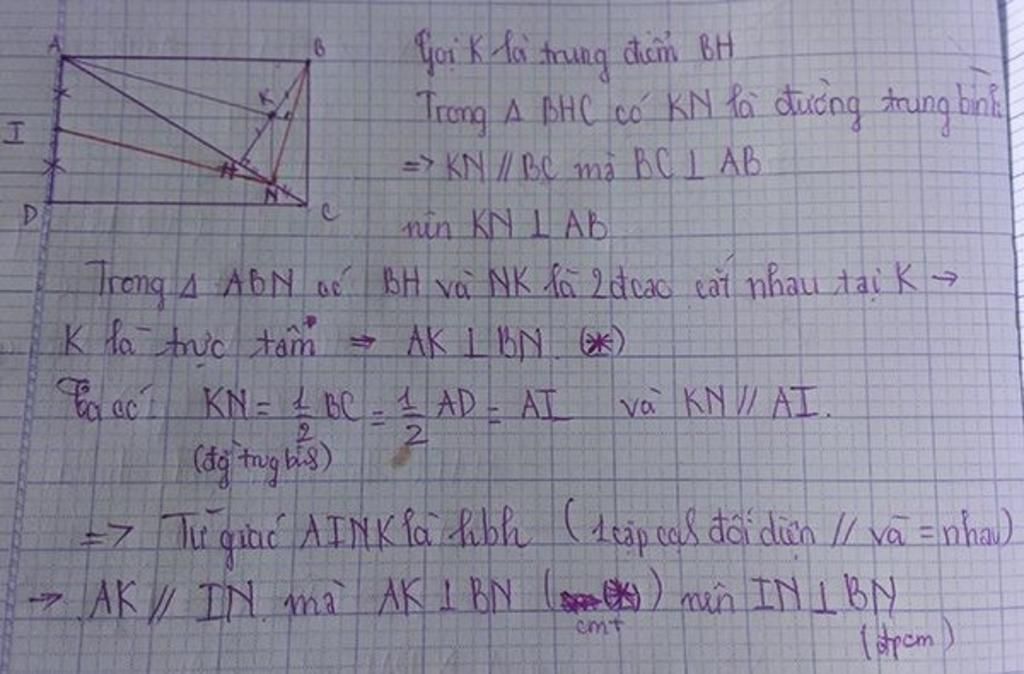 A
B
Gọi K là trung điểm BH
K
Trong Δ BHC có KN là đường trung bình
I
=> KN // BC mà BC ⊥ AB
H
N
D
C
nên KN ⊥ AB
Trong Δ ABN có BH và NK là 2 đcao cắt nhau tại K →
K là trực tâm => AK ⊥ BN (*)
Ta có: KN = 1/2 BC = 1/2 AD = AI và KN // AI.
(đg trug bìh)
=> Tứ giác AINK là hbh (1 cặp cạh đối diện // và = nhau)
→ AK // IN mà AK ⊥ BN (*) nên IN ⊥ BN
cmt
(đpcm)